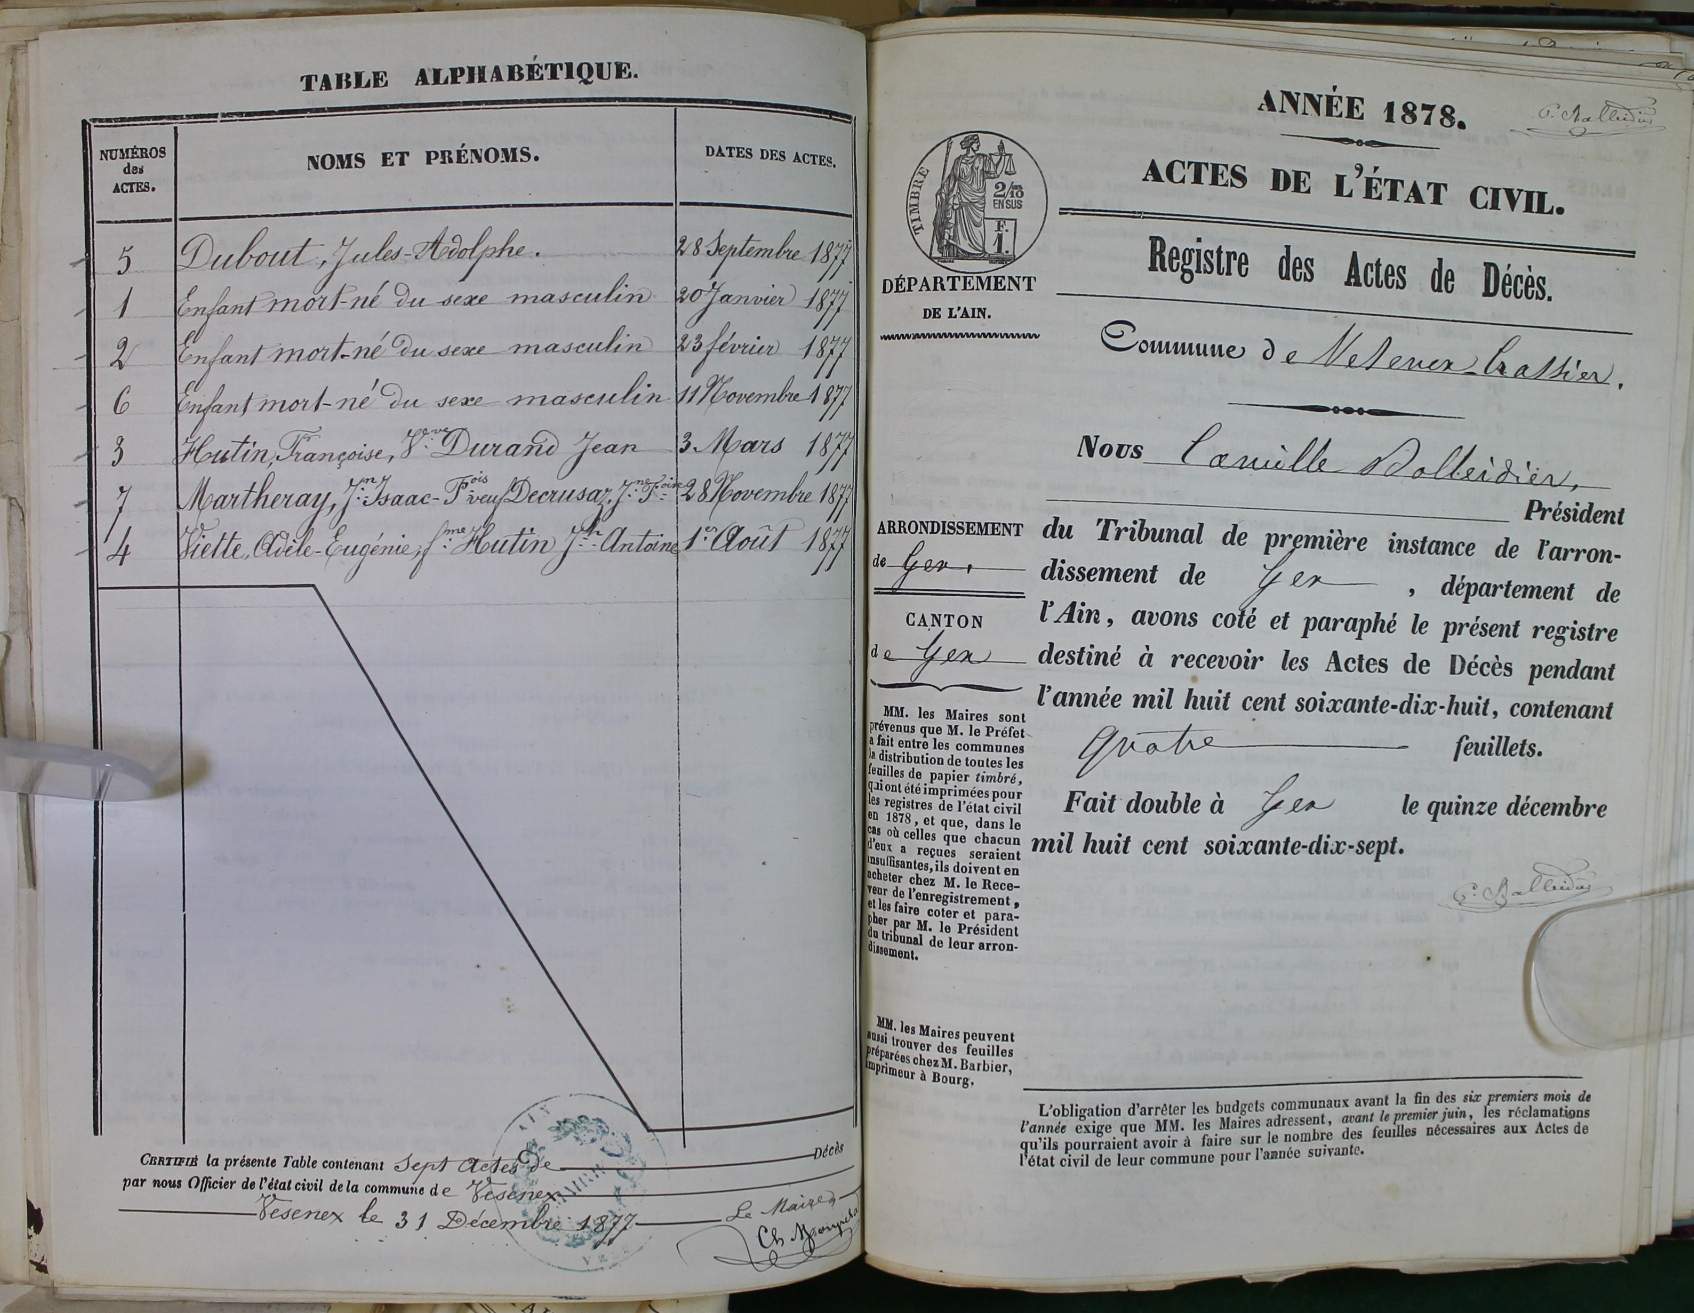 TABLE ALPHABÉTIQUE.
NUMÉROS des ACTES.
NOMS ET PRÉNOMS.
DATES DES ACTES.
5 Dubout, Jules-Adolphe. 28 Septembre 1877
1 Enfant mort-né du sexe masculin 20 Janvier 1877
2 Enfant mort-né du sexe masculin 23 février 1877
6 Enfant mort-né du sexe masculin 11 Novembre 1877
3 Hutin, Françoise, Vve Durand Jean 3 Mars 1877
7 Martheray, Jn Isaac-Fois veuf Decrusaz, Jne Foise 28 Novembre 1877
4 Viette, Adèle-Eugénie, fme Hutin Jh Antoine 1er Août 1877
CERTIFIÉ la présente Table contenant sept actes de Décès
par nous Officier de l'état civil de la commune de Vesenex
Vesenex le 31 Décembre 1877 Le Maire
AIN
MAIRIE
ANNÉE 1878.
ACTES DE L'ÉTAT CIVIL.
TIMBRE
2/10 EN SUS
F. 1.
Registre des Actes de Décès.
DÉPARTEMENT
DE L'AIN.
Commune de Vesenex-Crassier.
Nous Camille Balleidier,
Président
ARRONDISSEMENT
de Gex.
CANTON
de Gex
du Tribunal de première instance de l'arron-
dissement de Gex, département de
l'Ain, avons coté et paraphé le présent registre
destiné à recevoir les Actes de Décès pendant
l'année mil huit cent soixante-dix-huit, contenant
quatre feuillets.
Fait double à Gex le quinze décembre
mil huit cent soixante-dix-sept.
C. Balleidier
MM. les Maires sont
prévenus que M. le Préfet
a fait entre les communes
la distribution de toutes les
feuilles de papier timbré,
qui ont été imprimées pour
les registres de l'état civil
en 1878, et que, dans le
cas où celles que chacun
d'eux a reçues seraient
insuffisantes, ils doivent en
acheter chez M. le Rece-
veur de l'enregistrement,
et les faire coter et para-
pher par M. le Président
du tribunal de leur arron-
dissement.
MM. les Maires peuvent
aussi trouver des feuilles
préparées chez M. Barbier,
imprimeur à Bourg.
L'obligation d'arrêter les budgets communaux avant la fin des six premiers mois de
l'année exige que MM. les Maires adressent, avant le premier juin, les réclamations
qu'ils pourraient avoir à faire sur le nombre des feuilles nécessaires aux Actes de
l'état civil de leur commune pour l'année suivante.